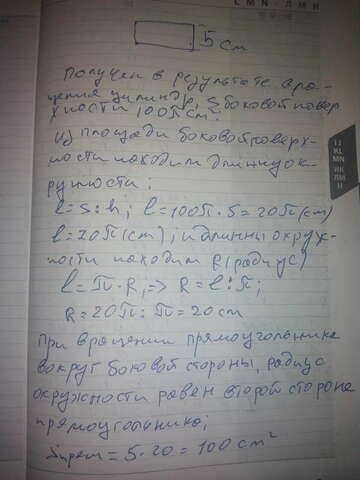 LMN·ЛМН
5 см
Получен в результате вра-
щения цилиндр, S боковой повер
хности 100π см.
Из площади боковой поверх-
ности находим длинну ок-
ружности:
l = S : h; l = 100π · 5 = 20π (см)
l = 20π (см); из длинны окруж-
ности находим R (радиус)
l = π · R, => R = l : π;
R = 20π : π = 20 см
При вращении прямоугольника
вокруг боковой стороны, радиус
окружности равен второй стороне
прямоугольника;
Sпрям = 5 · 20 = 100 см²
IJ
KL
MN
ИК
ЛМ
Н